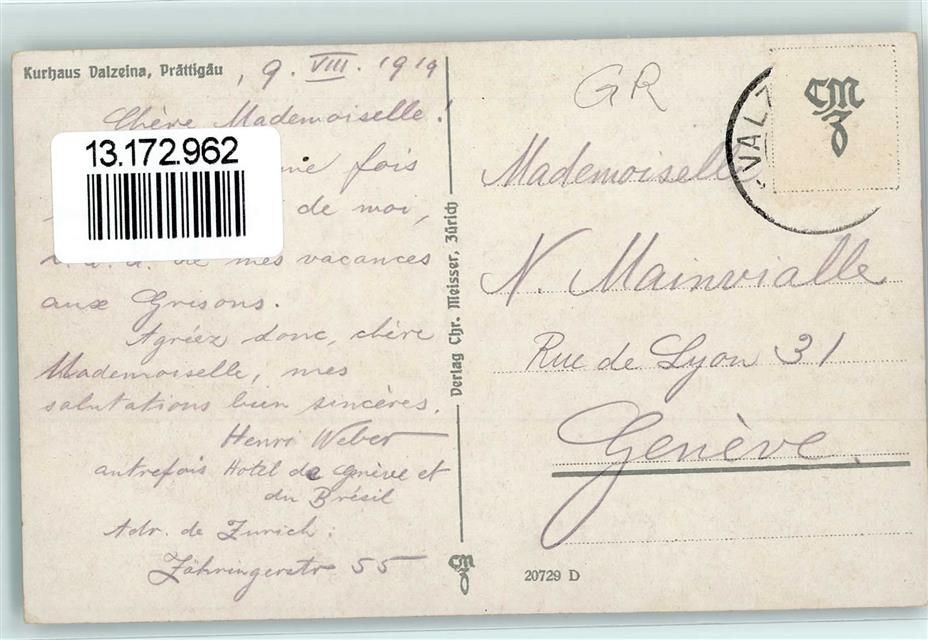 Kurhaus Valzeina, Prättigäu , 9. VIII. 1919
Chère Mademoiselle !
13.172.962
fois
de moi,
de mes vacances
aux Grisons.
Agréez donc, chère
Mademoiselle, mes
salutations bien sincères.
Henri Weber
autrefois Hotel de Genève et
du Brésil
Adr. de Zurich :
Zähringerstr 55
Verlag Chr. Meisser, Zürich
CMZ
GR
VALZ
CMZ
Mademoiselle
N. Mainvialle
Rue de Lyon 31
Genève.
20729 D